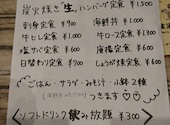 炭火焼き"生"ハンバーグ定食 ¥1,500
刺身定食 ¥900
海鮮丼 ¥1,000
牛ヒレ定食 ¥1,000
牛ロース定食 ¥1,300
塩サバ定食 ¥800
唐揚定食 ¥1,000
日替わり定食 ¥700
しょうが焼定食 ¥1,000
ごはん・サラダ・みそ汁・小鉢2種
つきます
ソフトドリンク飲み放題 ¥300